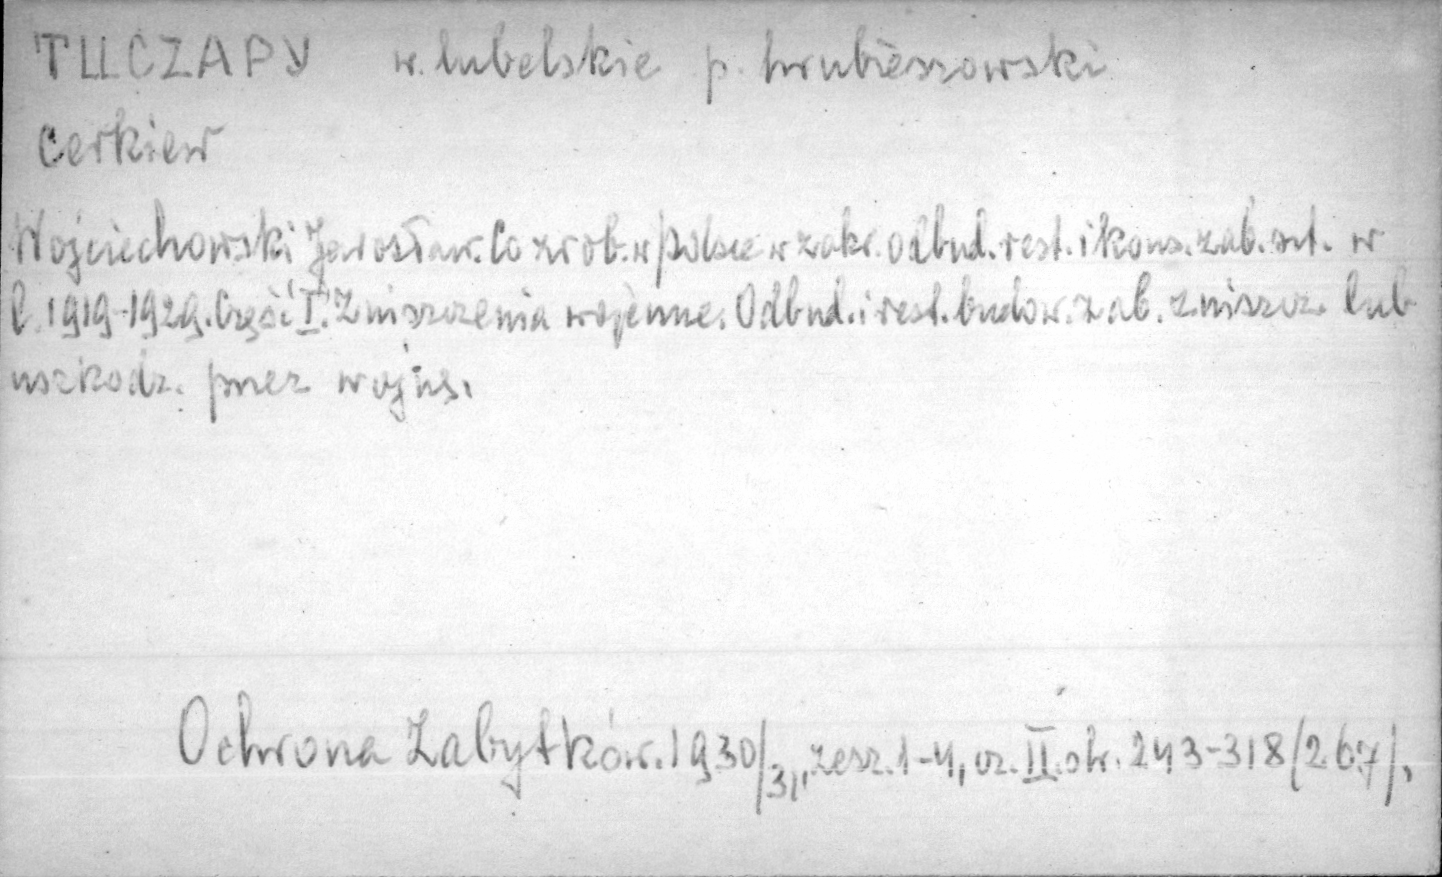 TUCZAPY w. lubelskie p. hrubieszowski
cerkiew
Wojciechowski Jarosław. Co zrob. w Polsce w zakr. odbud. rest. i kons. zab. szt. w
l. 1919-1929. Część I. Zniszczenia wojenne. Odbud. i rest. budow. zab. zniszcz. lub
uszkodz. przez wojnę.
Ochrona Zabytków. 1930/31, zesz. 1-4, cz. II. str. 243-318/267/.